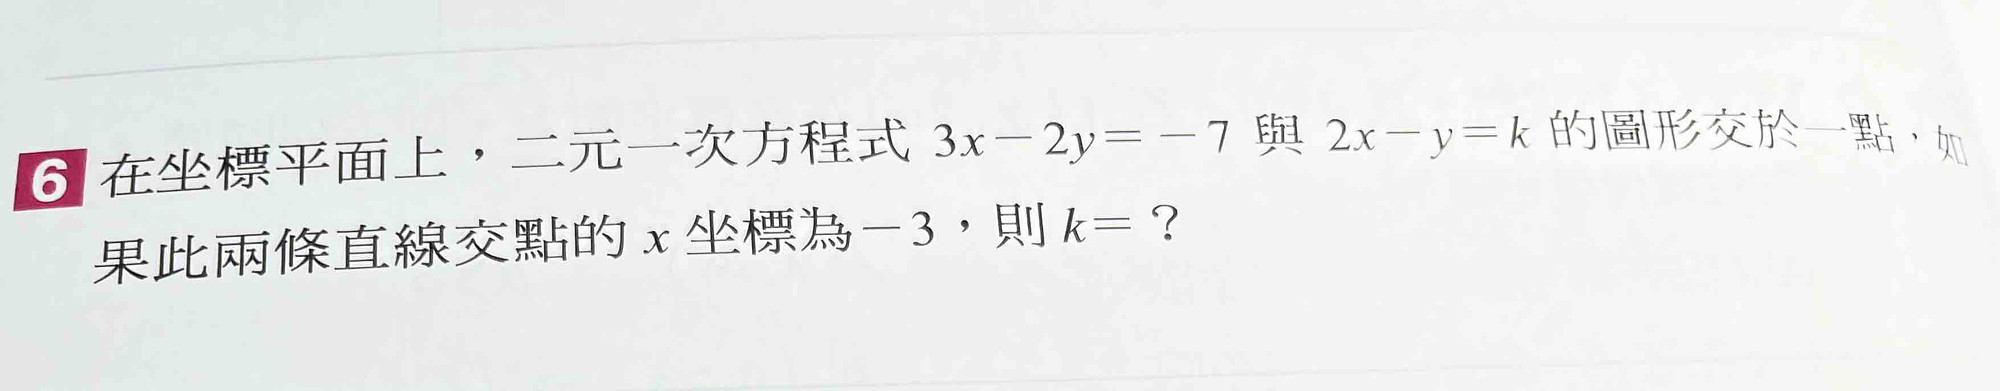 6 在坐標平面上，二元一次方程式 3x－2y＝－7 與 2x－y＝k 的圖形交於一點，如
果此兩條直線交點的 x 坐標為－3，則 k＝？